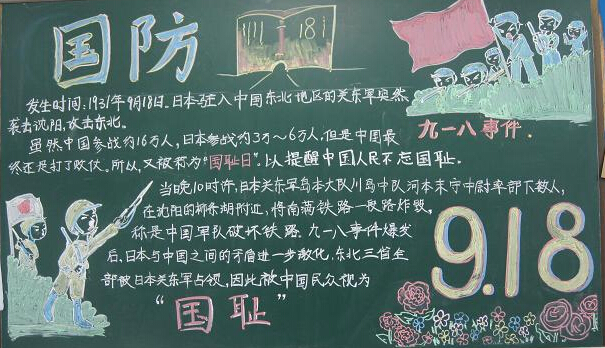 国防
1931 918
发生时间:1931年9月18日.日本驻入中国东北地区的关东军突然
袭击沈阳,攻击东北。
九一八事件.
虽然中国参战约16万人,日本参战约3万~6万人,但是中国最
终还是打了败仗。所以,又被称为“国耻日”.以提醒中国人民不忘国耻.
当晚10时许,日本关东军岛本大队川岛中队河本末守中尉率部下数人,
在沈阳的柳条湖附近,将南满铁路一段路炸毁。
称是中国军队破坏铁路.九一八事件爆发
后,日本与中国之间的矛盾进一步激化,东北三省全
部被日本关东军占领,因此被中国民众视为
“国耻”
9.18